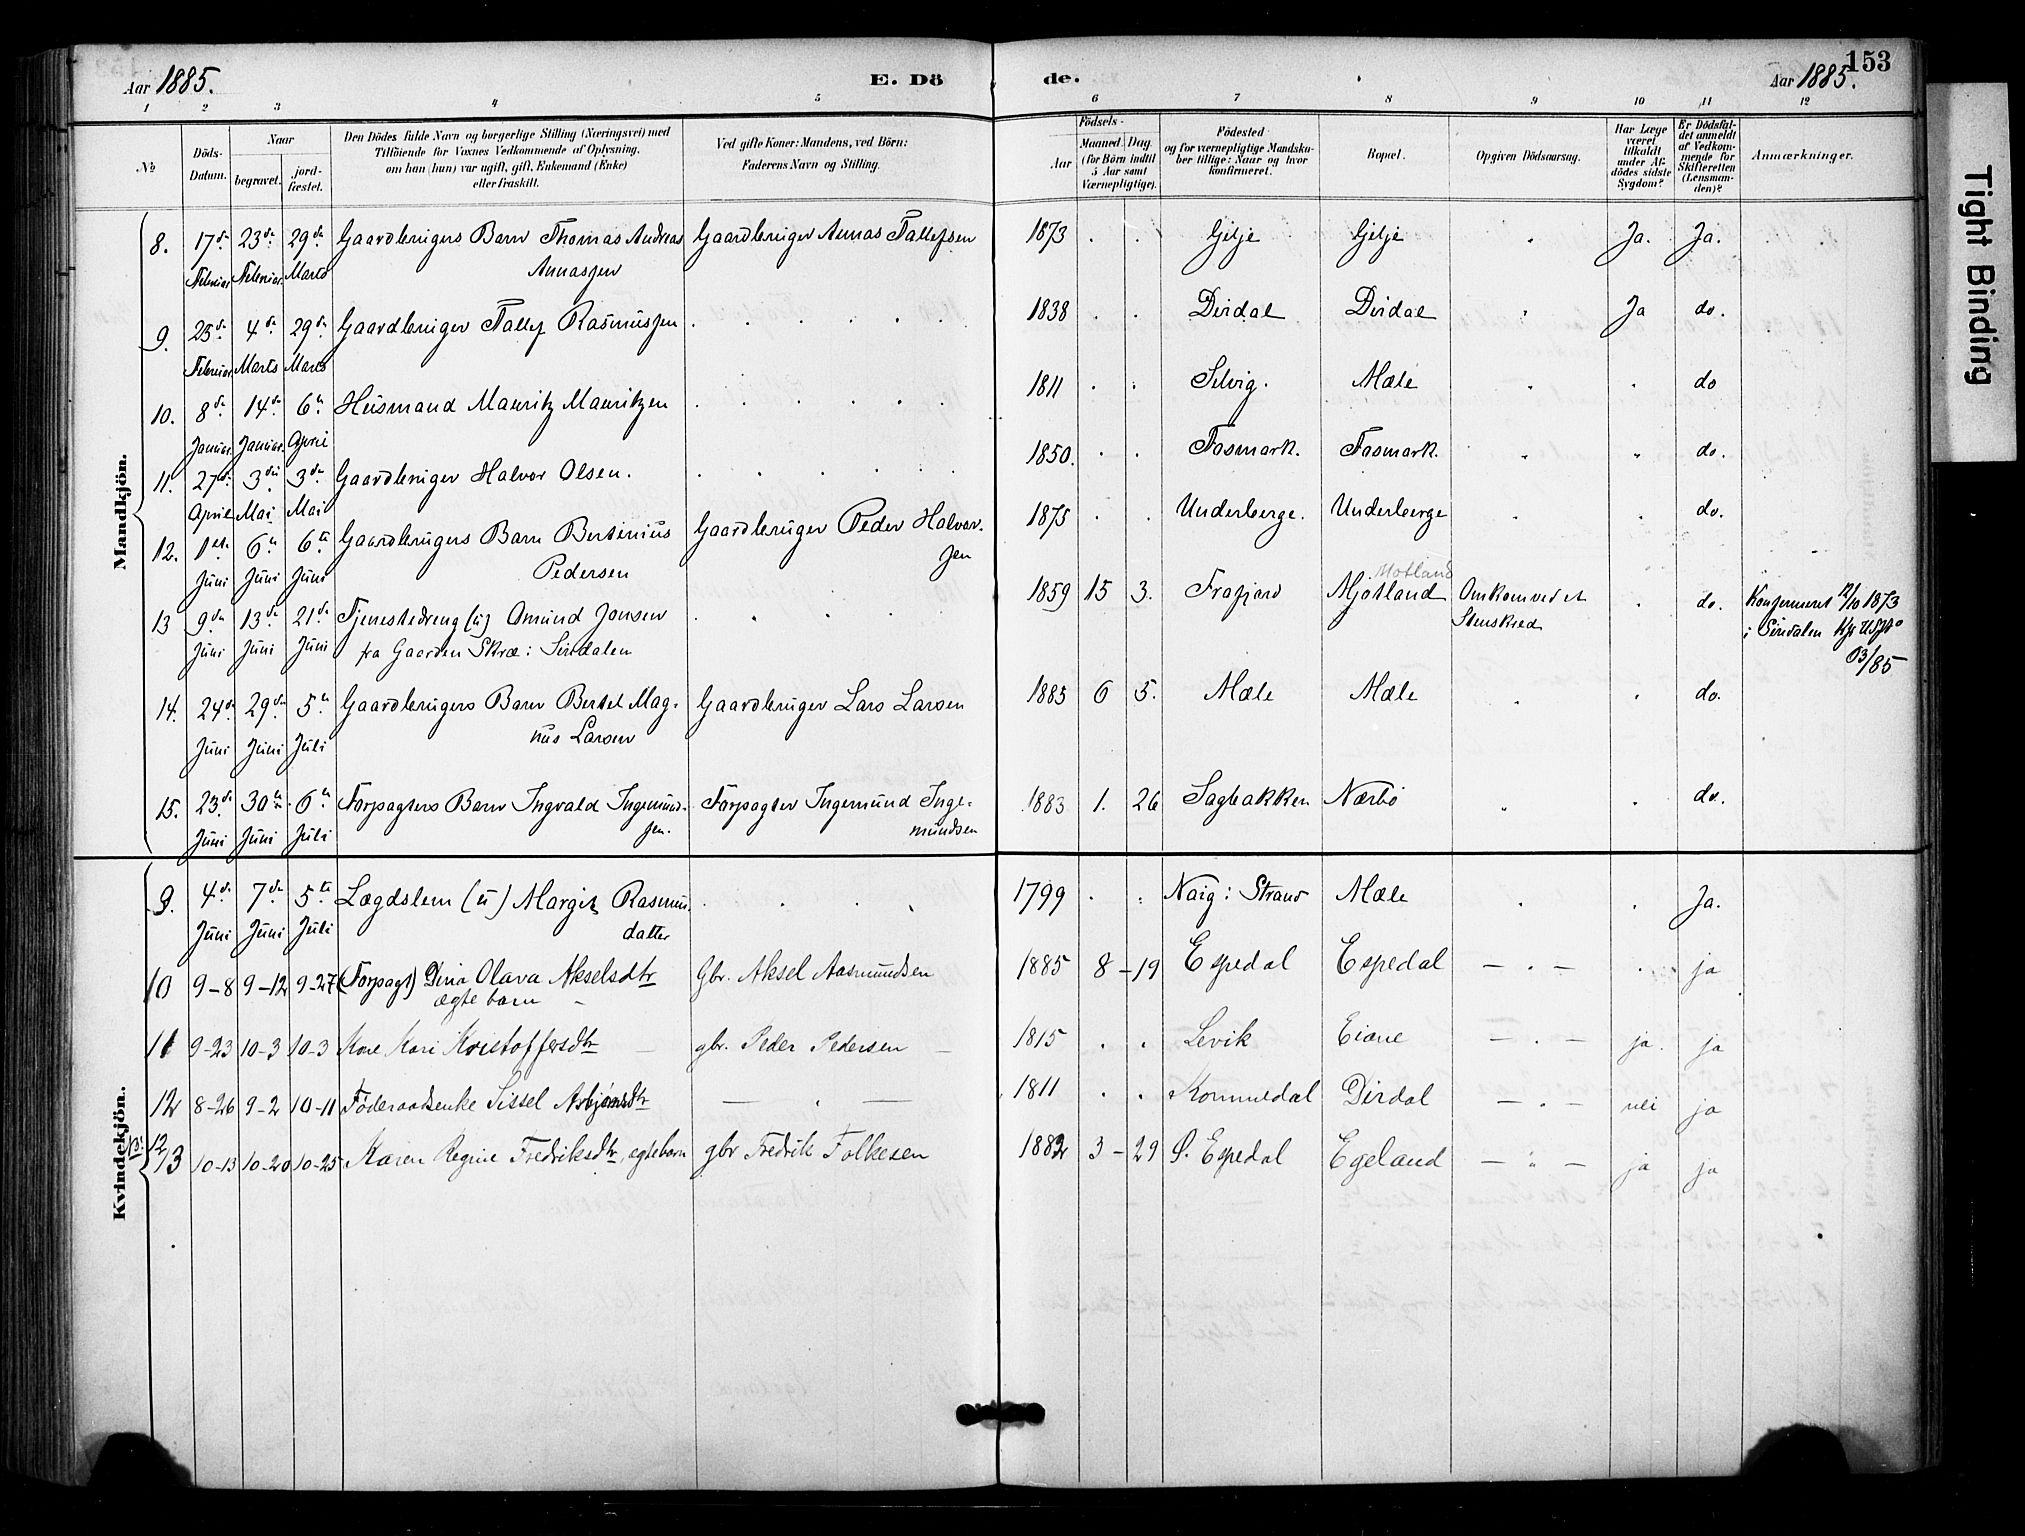 Aar 1885.
E. Dö
de.
Aar 1885.
153
1 2 3 4 5 6 7 8 9 10 11 12
No
Döds-
Datum.
Naar
begravet.
jord-
fæstet.
Den Dödes fulde Navn og borgerlige Stilling (Næringsvei) med
Tilföiende for Voxnes Vedkommende af Oplysning,
om han (hun) var ugift, gift, Enkemand (Enke)
eller fraskilt.
Ved gifte Koner: Mandens, ved Börn:
Faderens Navn og Stilling.
Födsels-
Aar
Maaned.
Dag
(for Börn indtil
5 Aar samt
Værnepligtige).
Födested
og for værnepligtige Mandska-
ber tillige: Naar og hvor
konfirmeret.
Bopæl.
Opgiven Dödsaarsag.
Har Læge
været
tilkaldt
under Af-
dödes sidste
Sygdom?
Er Dödsfal-
det anmeldt
af Vedkom-
mende for
Skifteretten
(Lensman-
den)?
Anmærkninger.
Tight Binding
Mandkjön.
8. 17de 23de 29de Gaardbrugers Barn Thomas Andreas Gaardbruger Annas Tallefsen 1873 . . Gilje Gilje " Ja. Ja.
Februar Februar Marts Annassen
9. 25de 4de 29de Gaardbruger Tallef Rasmussen . . . . . . 1838 . . Dirdal Dirdal " Ja do.
Februar Marts Marts
10. 8de 14de 6te Husmand Mauritz Mauritzen . . . . . . 1811 . . Selvig. Mæle " . do
Januar. Januar. April
11. 27de 3die 3die Gaardbruger Halvor Olsen. . . . . . . 1850. . . Fasmark. Fasmark. " " do.
April Mai Mai
12. 1ste 6te 6te Gaardbrugers Barn Bertinius Gaardbruger Peder Halvor- 1875 . . Underberge. Underberge " . do.
Juni Juni Juni Pedersen sen
Motland
13 9de 13de 21de Tjenestedreng (u) Omund Jonsen . . . . 1859 15 3. Frafjord Mjotland Omkom ved et . do. Konfirmeret 12/10 1873
Juni Juni Juni fra Gaarden Skræ i Sirdalen Stenskred i Sirdalen
03/85
14. 24de 29de 5te Gaardbrugers Barn Bertel Mag- Gaardbruger Lars Larsen 1885 6 5. Mæle Mæle " . do.
Juni Juni Juli nus Larsen
15. 23de 30te 6te Forpagters Barn Ingvald Ingemund- Forpagter Ingemund Inge- 1883 1. 26 Sagbakken Nærbö " . do.
Juni Juni Juli sen. mundsen
Kvindekjön.
9. 4de 7de 5te Lægdslem (u) Margit Rasmus- . . . . 1799 . . Naig i Strand Mæle " . Ja.
Juni Juni Juli datter
10 9–8 9–12 9–27 (Forpagt) Dina Olava Akselsdtr Gbr. Aksel Aasmundsen 1885 8–19 Espedal Espedal – . – . ja
ægte barn –
11 9–23 10–3 10–3 Kone Kari Kristoffersdtr – gbr. Peder Pedersen – 1815 . . Levik Eiane – . – ja. ja
12 8–26 9–2 10–11 Föderaadsenke Sissel Asbjörnsdtr – . – 1811 . . Kommedal Dirdal – . – nei ja
13 10–13 10–20 10–25 Karen Regine Fredriksdtr, egtebarn gbr Fredrik Folkesen 1882 3–29 Ö. Espedal Egeland – " – ja ja